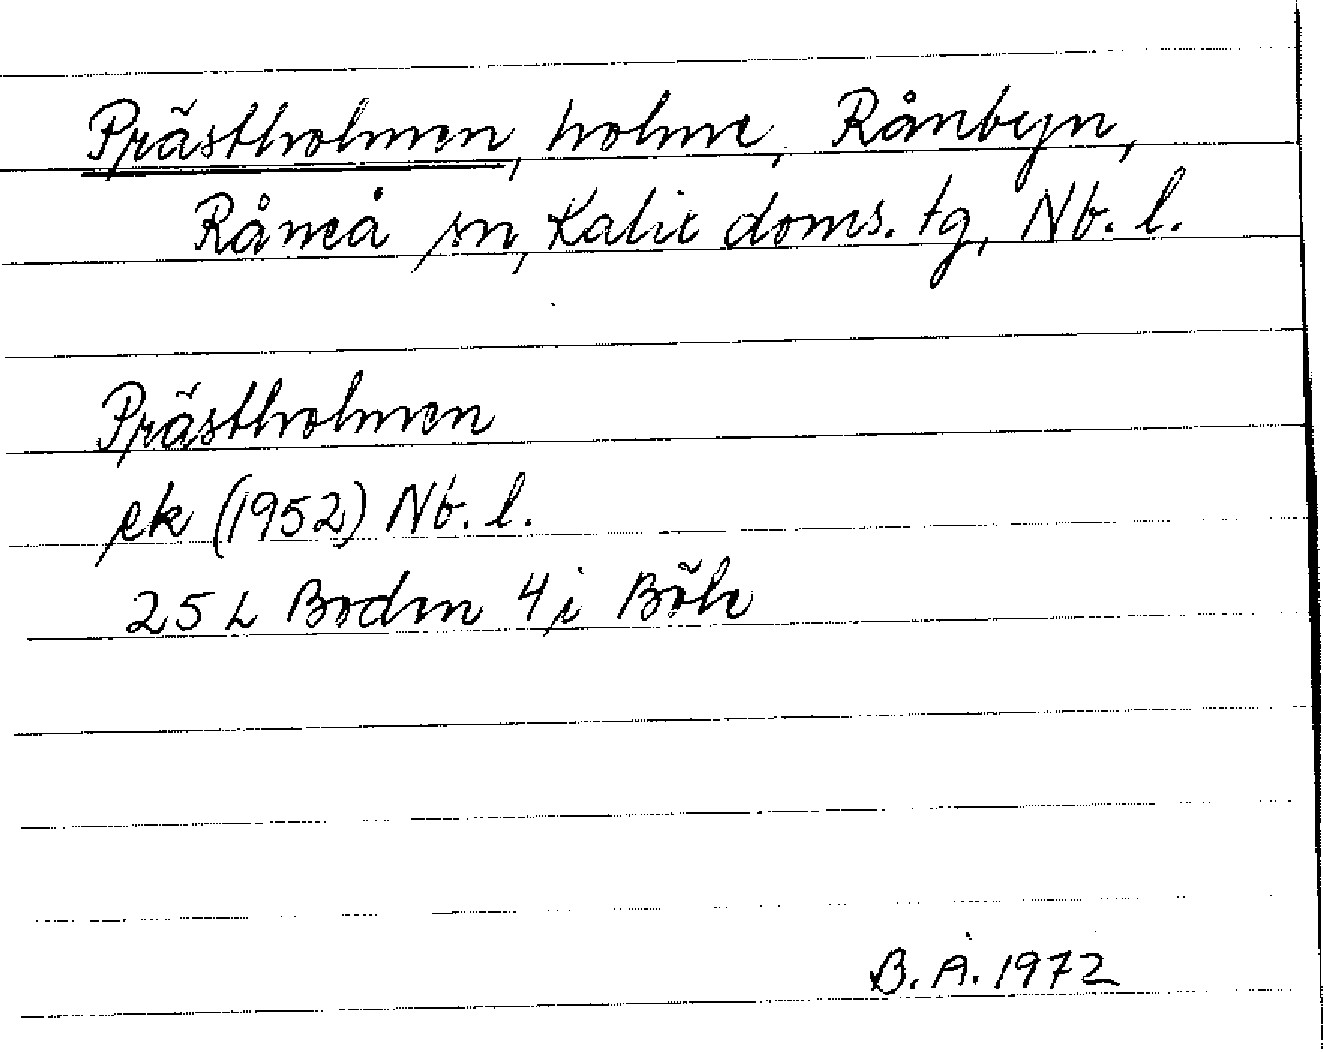 Prästholmen, holme, Rånbyn,
Råneå sn, Kalix doms. tg, Nb. l.
Prästholmen
ek (1952) Nb. l.
25 L Boden 4 i Böle
B. Å. 1972